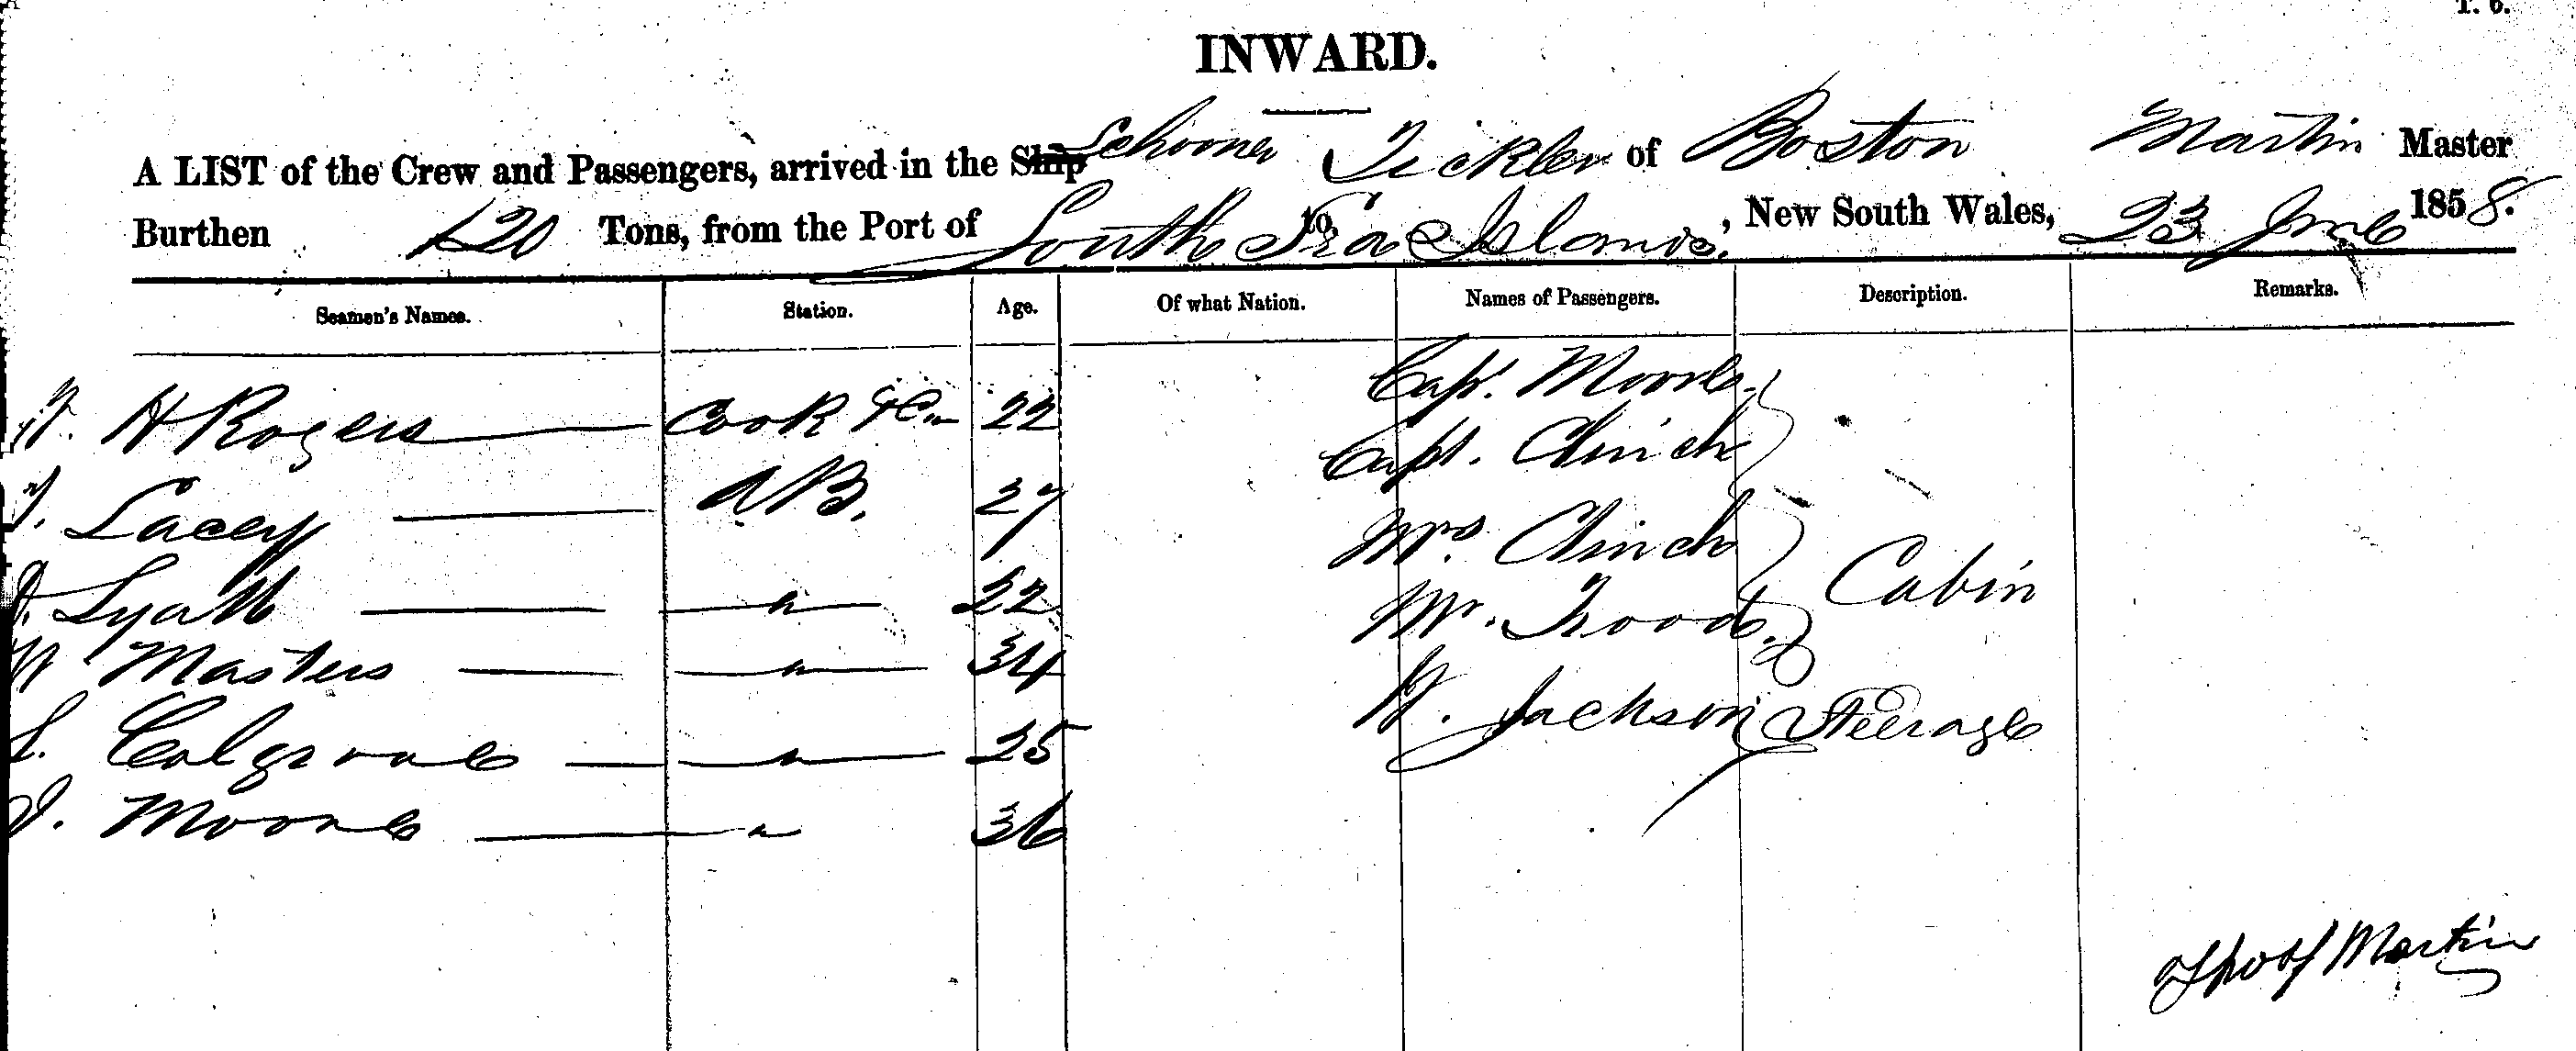 INWARD.
A LIST of the Crew and Passengers, arrived in the Ship Schooner Tickler of Boston Martin Master
Burthen 120 Tons, from the Port of South Sea Islands to, New South Wales, 23 June 1858.
Seamen's Names. Station. Age. Of what Nation. Names of Passengers. Description. Remarks.
Capt. Moore
W. H Rogers Cook &c 22
Capt. Clinch
T. Lacey AB. 27
Mrs Clinch Cabin
Lyall " 22
Mr. Trood
W Masters " 34
W. Jackson Steerage
S. Colgrove " 25
J. Moore " 36
Thos H Martin